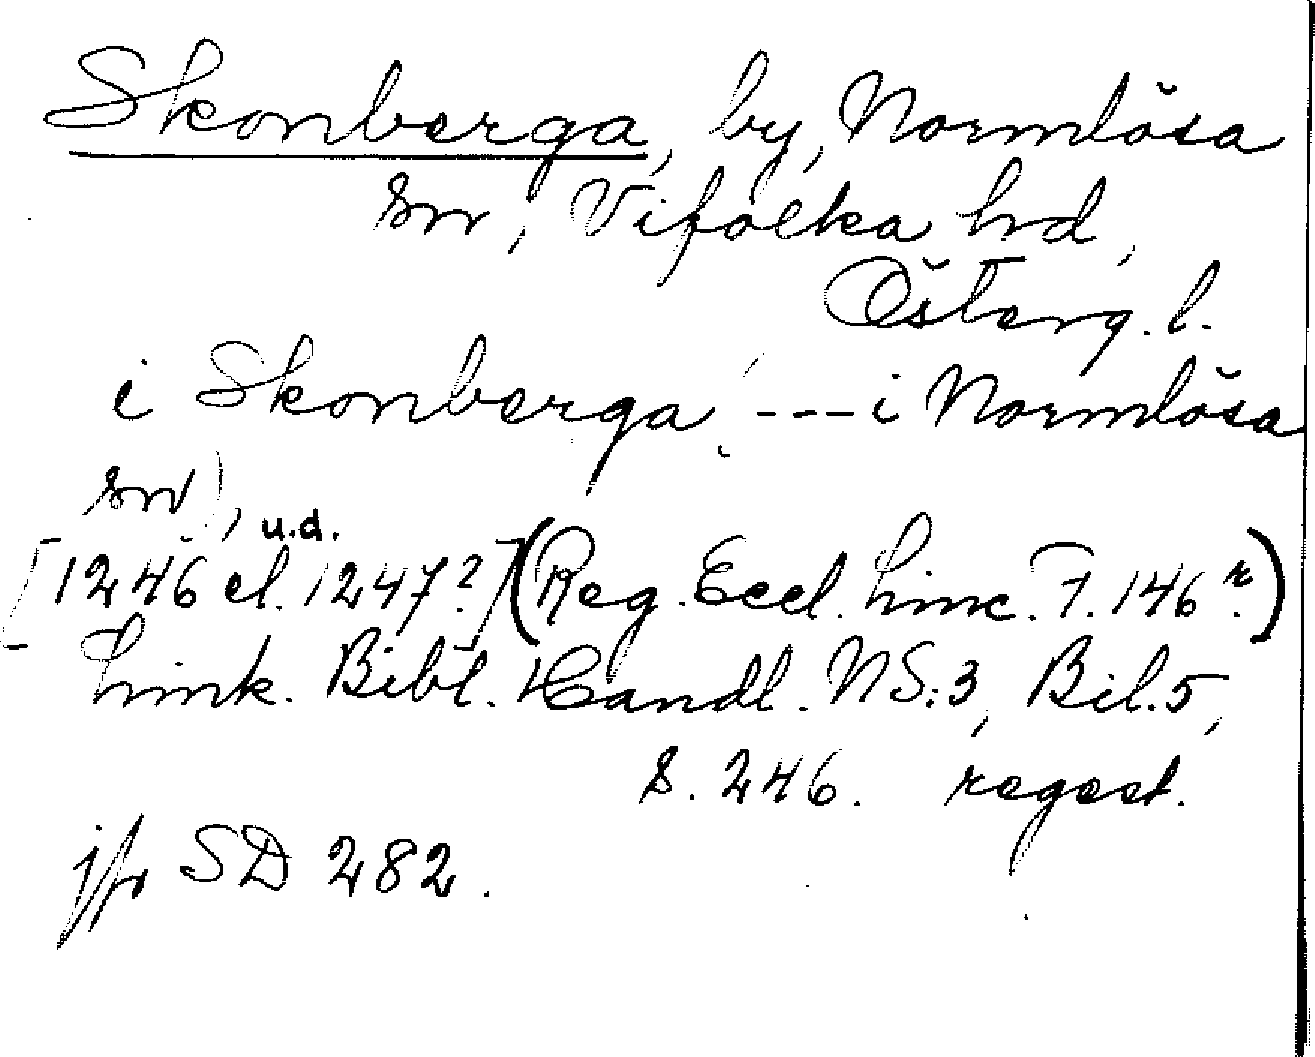 Skonberga, by, Normlösa
sn, Vifolka hd,
Österg. l.
i Skonberga (--- i Normlösa
sn), u.d.
[1246 el. 1247?] (Reg. Eccl. Linc. F. 146 r.)
Link. Bibl. Handl. NS:3, Bil. 5,
s. 246. regest.
jfr SD 282.